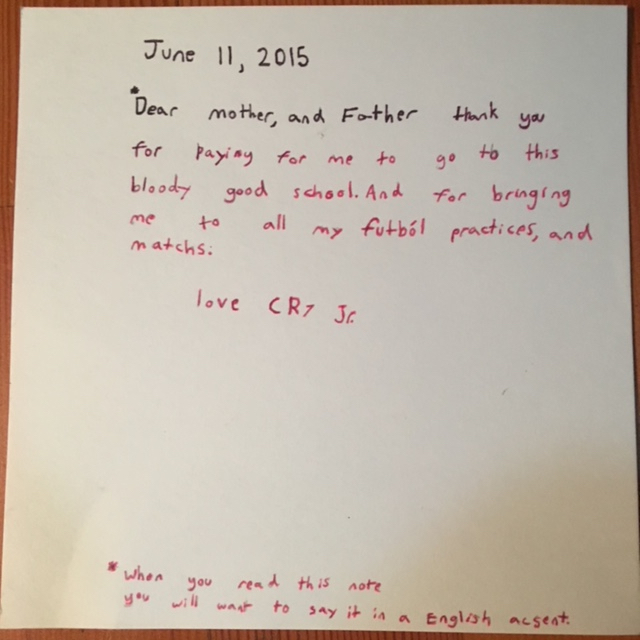 June 11, 2015
*Dear mother, and Father thank you
for paying for me to go to this
bloody good school. And for bringing
me to all my futból practices, and
matchs.
love CR7 Jr.
*When you read this note
you will want to say it in a English acsent.